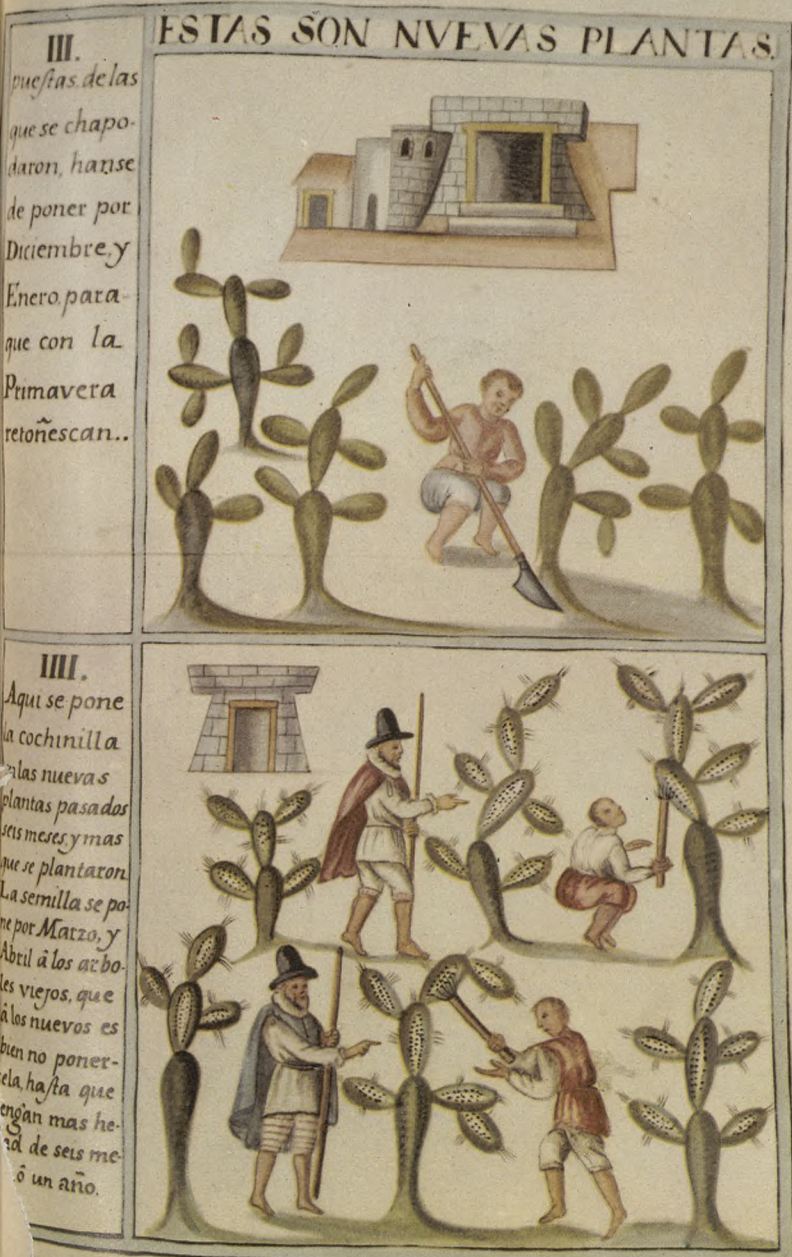 ESTAS SON NVEVAS PLANTAS.
III.
pueſtas de las
que se chapo-
daron, hanse
de poner por
Diciembre, y
Enero, para
que con la
Primavera
retoñescan..
IIII.
Aqui se pone
la cochinilla
las nuevas
plantas pasados
seis meses, y mas
que se plantaron
La semilla se po-
ne por Marzo, y
Abril â los arbo-
les viejos, que
â los nuevos es
bien no poner-
ela, haſta que
engan mas he-
ad de seis me-
ô un año.